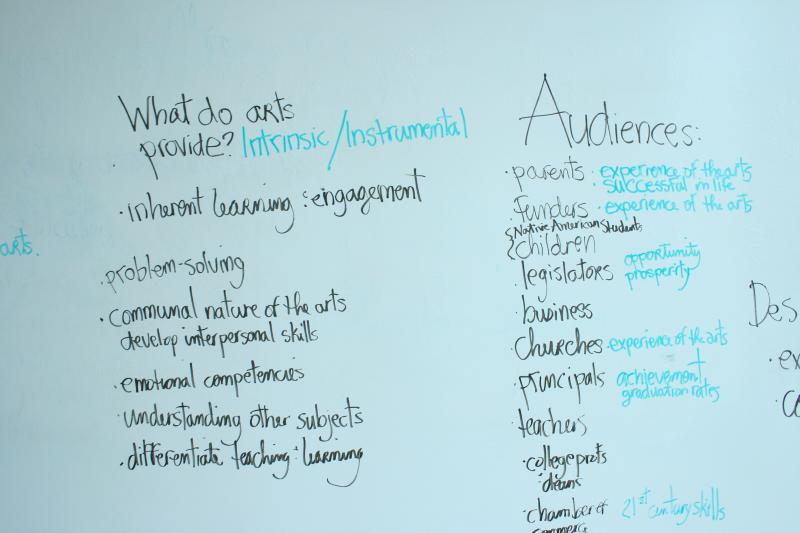 What do arts
provide? Intrinsic/Instrumental
· inherent learning & engagement
· problem-solving
· communal nature of the arts
develop interpersonal skills
· emotional competencies
· understanding other subjects
· differentiate teaching & learning
arts.
Audiences:
· parents · experience of the arts
· successful in life
· funders · experience of the arts
{Native American Students
{children
· legislators opportunity
prosperity
· business
· churches experience of the arts
· principals achievement
graduation rates
· teachers
· college profs
· deans
· chamber of 21st century skills
commerce
Des
· ex
· co